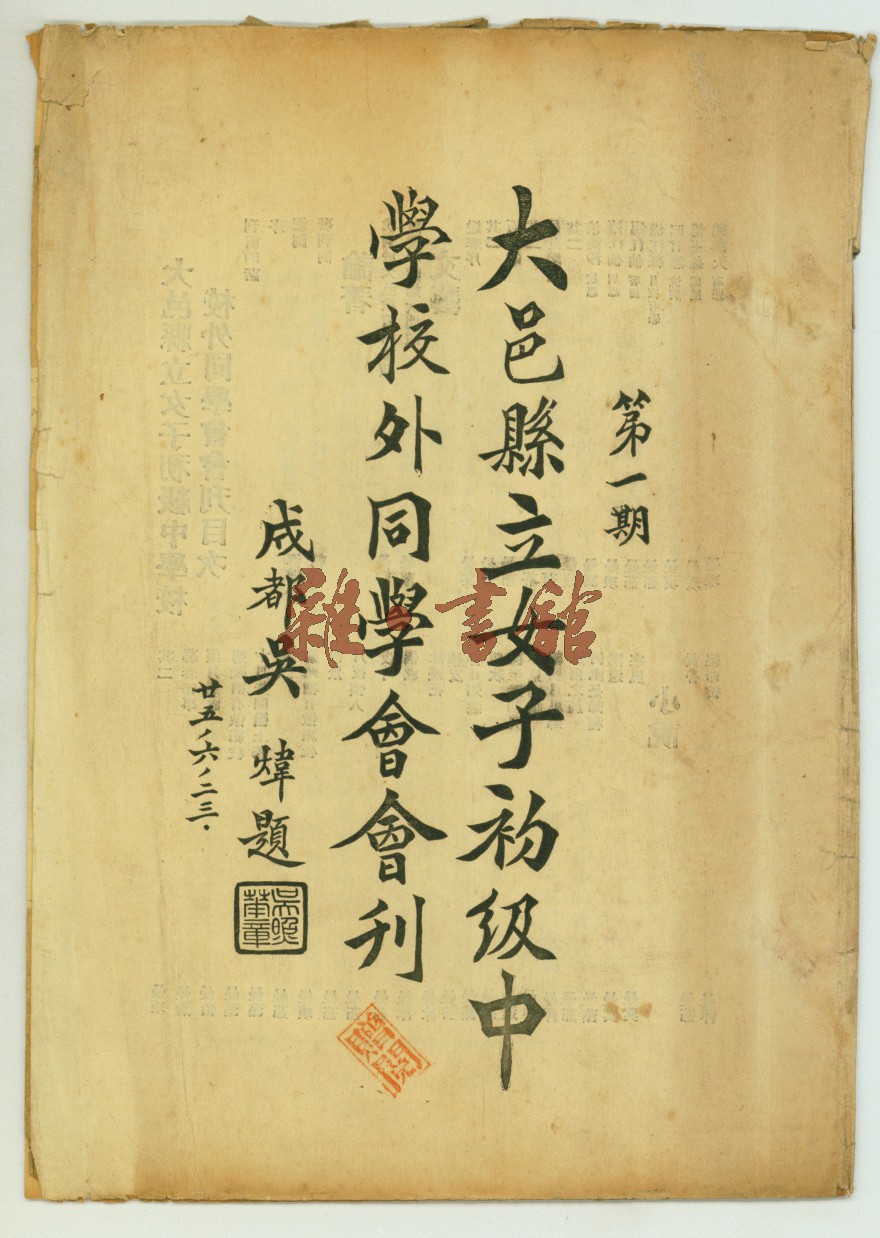 第一期
大邑縣立女子初級中
學校外同學會會刊
成都吳煒題
廿五、六、二三.
雜·書館